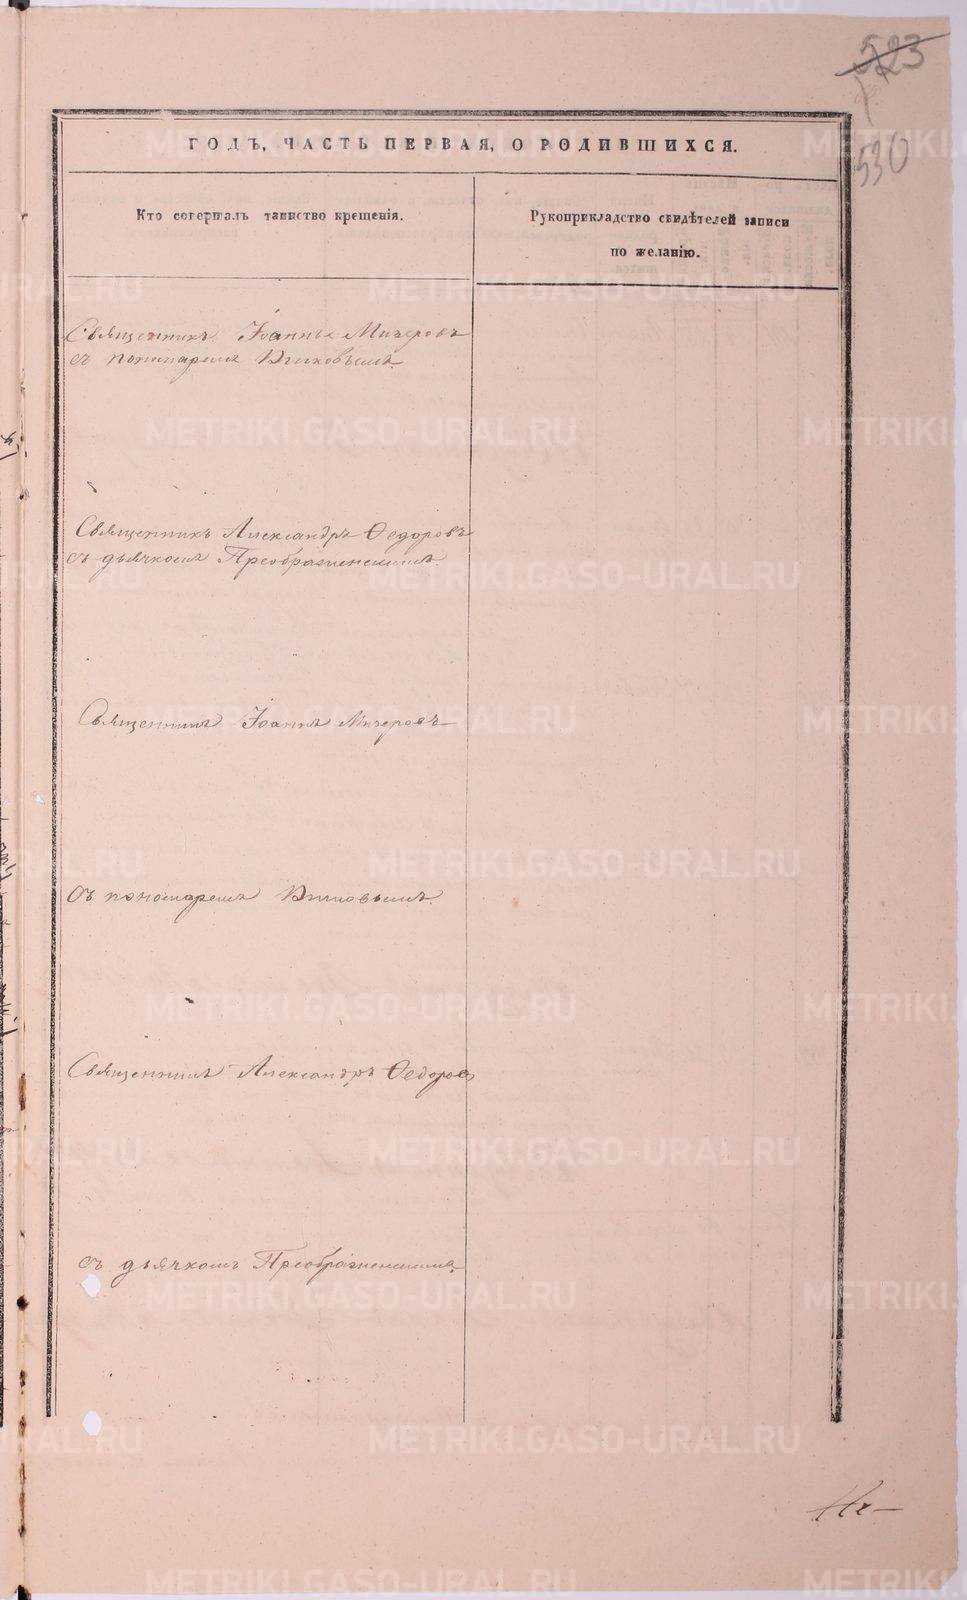 523
530
ГОДЪ, ЧАСТЬ ПЕРВАЯ, О РОДИВШИХСЯ.
Кто совершалъ таинство крещенія.
Рукоприкладство свидѣтелей записи
по желанію.
Священникъ Іоаннъ Мичеровъ
съ пономаремъ
Священникъ Александръ Ѳедоровъ
съ дьячкомъ Преображенскимъ.
Священникъ Іоаннъ Мичеровъ
Съ пономаремъ
Священникъ Александръ Ѳедоровъ
съ дьячкомъ Преображенскимъ.
METRIKI.GASO-URAL.RU